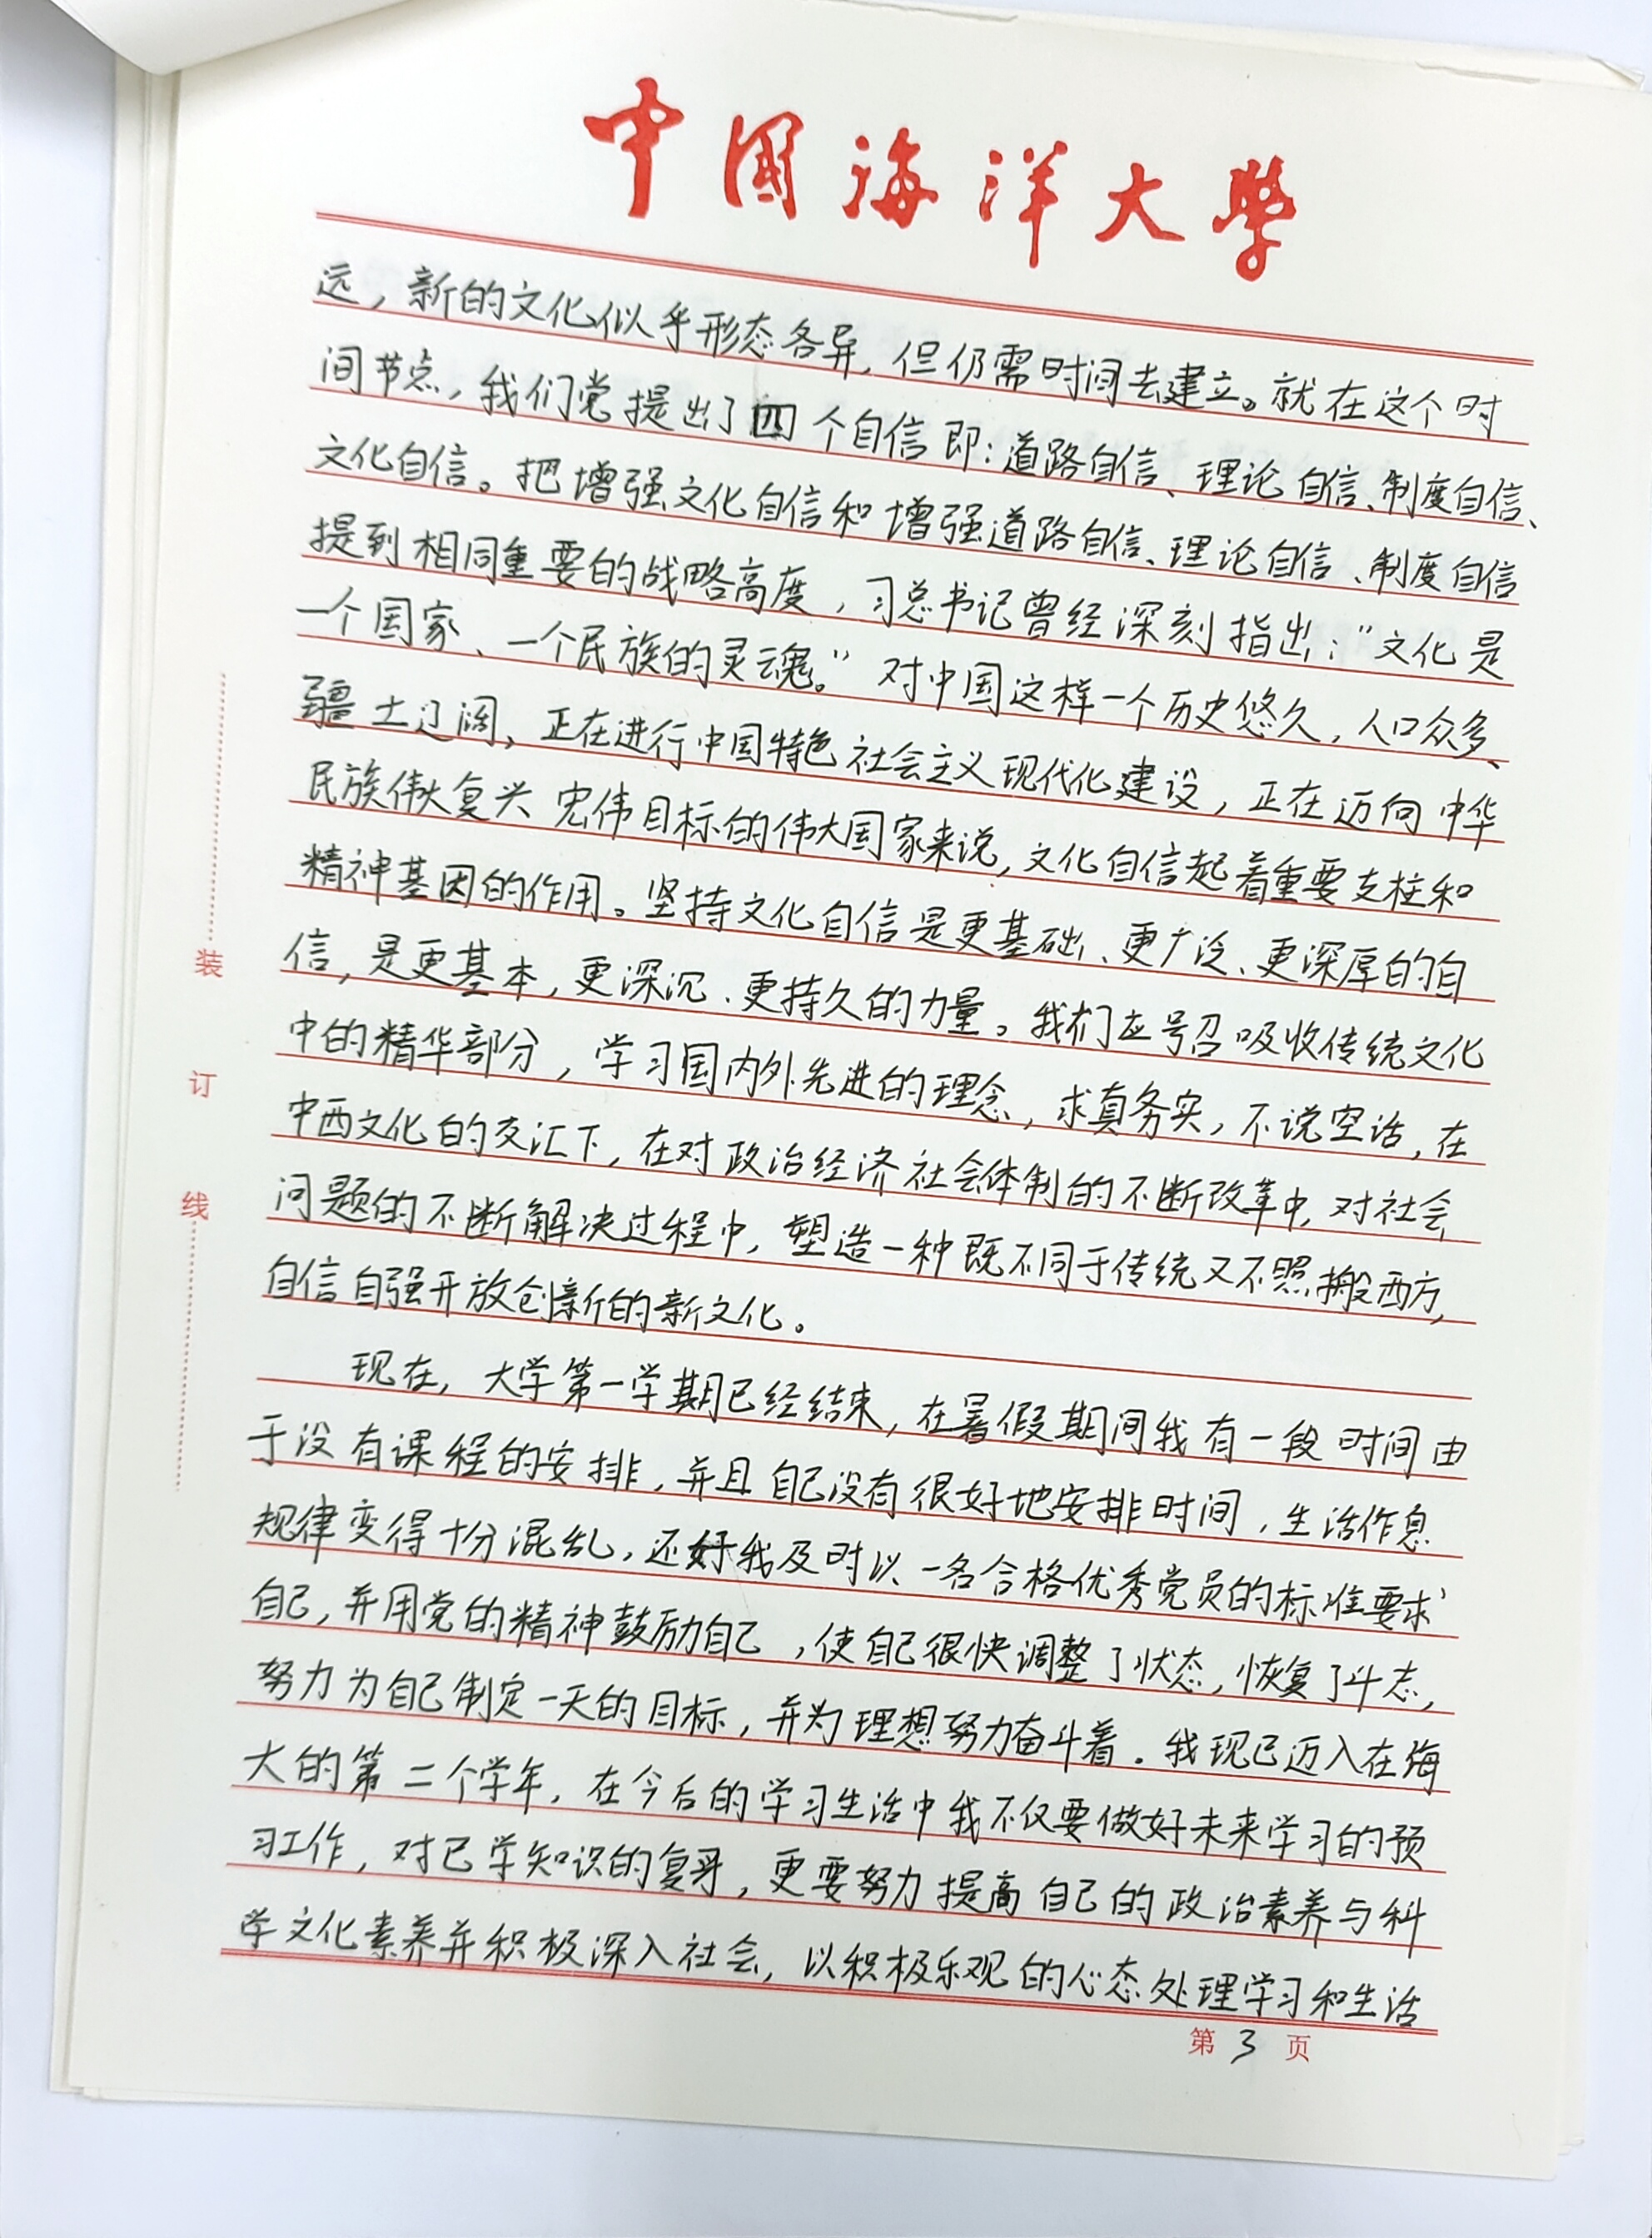 中国海洋大学
远，新的文化似乎形态各异，但仍需时间去建立。就在这个时
间节点，我们党提出了四个自信即：道路自信、理论自信、制度自信、
文化自信。把增强文化自信和增强道路自信、理论自信、制度自信
提到相同重要的战略高度，习总书记曾经深刻指出：“文化是
一个国家、一个民族的灵魂。”对中国这样一个历史悠久，人口众多、
疆土辽阔、正在进行中国特色社会主义现代化建设，正在迈向中华
民族伟大复兴宏伟目标的伟大国家来说，文化自信起着重要支柱和
精神基因的作用。坚持文化自信是更基础、更广泛、更深厚的自
信，是更基本，更深沉、更持久的力量。我们应号召吸收传统文化
中的精华部分，学习国内外先进的理念，求真务实，不说空话，在
中西文化的交汇下，在对政治经济社会体制的不断改革中，对社会
问题的不断解决过程中，塑造一种既不同于传统又不照搬西方，
自信自强开放创新的新文化。
现在，大学第一学期已经结束，在暑假期间我有一段时间由
于没有课程的安排，并且自己没有很好地安排时间，生活作息
规律变得十分混乱，还好我及时以一名合格优秀党员的标准要求
自己，并用党的精神鼓励自己，使自己很快调整了状态，恢复了斗态，
努力为自己制定一天的目标，并为理想努力奋斗着。我现已迈入在海
大的第二个学年，在今后的学习生活中我不仅要做好未来学习的预
习工作，对已学知识的复习，更要努力提高自己的政治素养与科
学文化素养并积极深入社会，以积极乐观的心态处理学习和生活
第3页
装
订
线